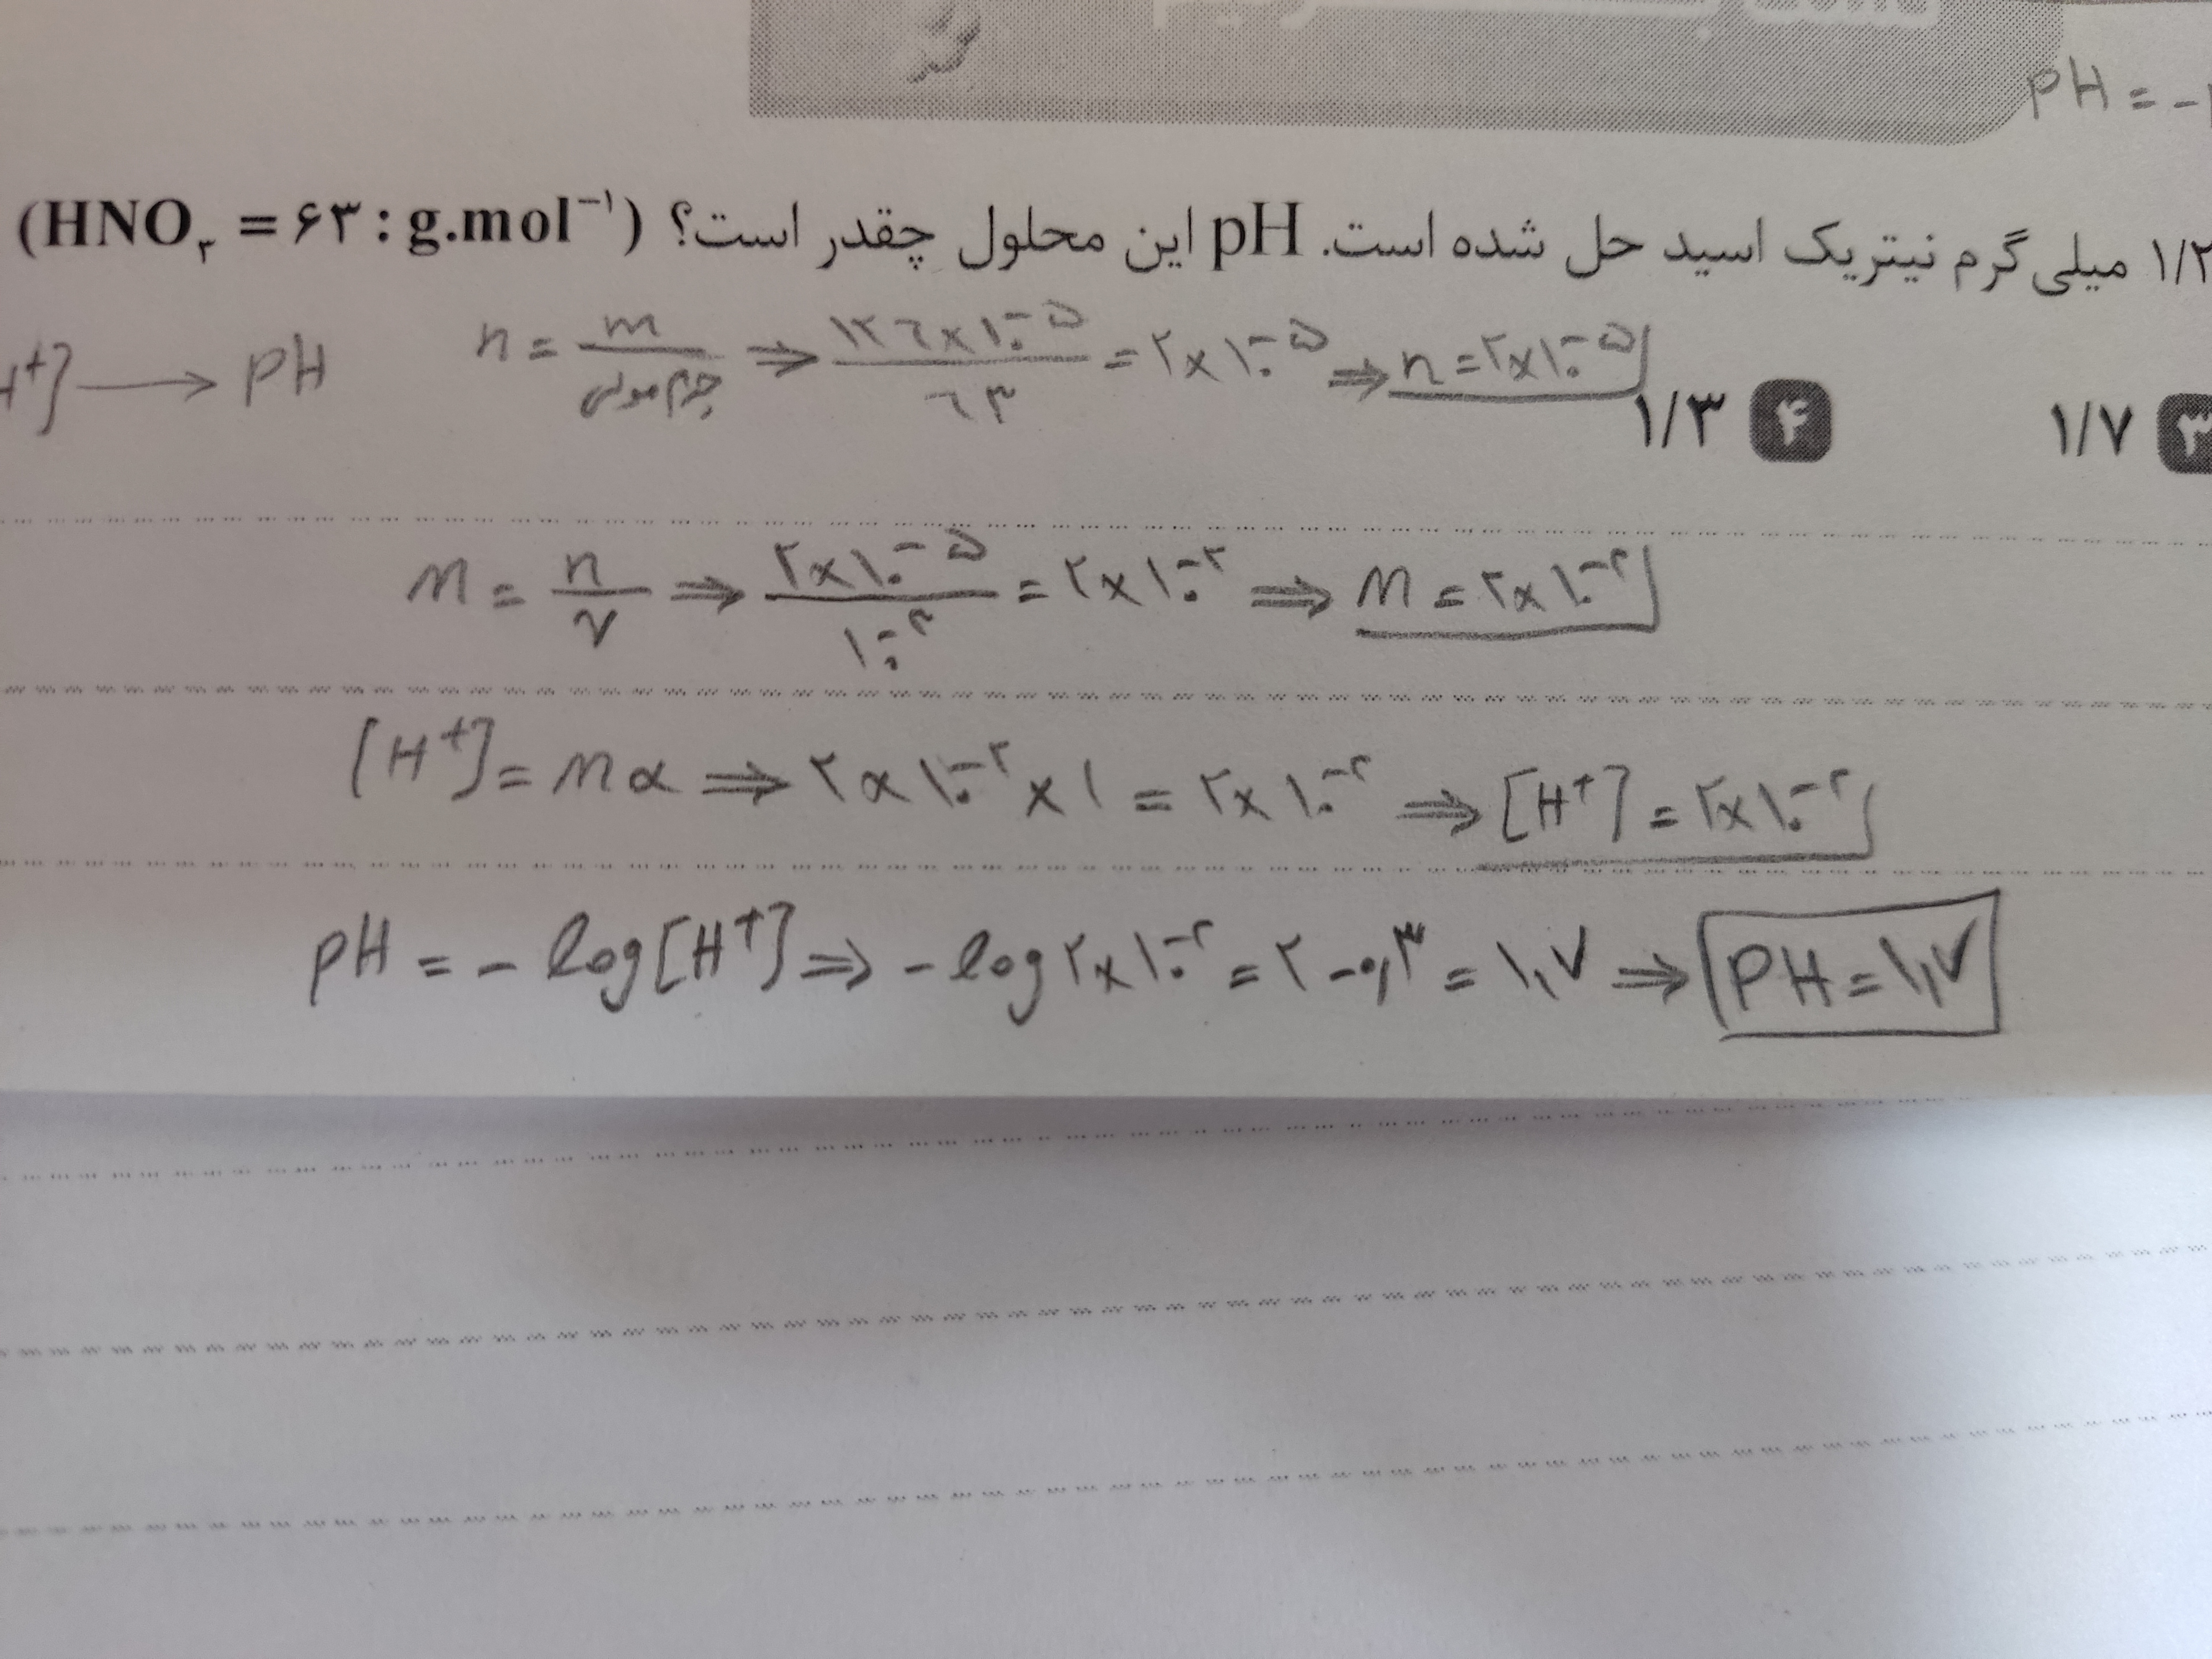 PH = -
۱/۲ میلی گرم نیتریک اسید حل شده است. pH این محلول چقدر است؟ (HNO₃ = ۶۳ : g.mol⁻¹)
H⁺] ⟶ PH n = m/جرم مولی ⇒ ۱۲٦×۱۰⁻⁵/٦۳ = ۲×۱۰⁻⁵ ⇒ n = ۲×۱۰⁻⁵
۳ ۱/۷ ۴ ۱/۳
M = n/V ⇒ ۲×۱۰⁻⁵/۱۰⁻³ = ۲×۱۰⁻² ⇒ M = ۲×۱۰⁻²
[H⁺] = Mα ⇒ ۲×۱۰⁻²×۱ = ۲×۱۰⁻² ⇒ [H⁺] = ۲×۱۰⁻²
PH = - log[H⁺] ⇒ - log ۲×۱۰⁻² = ۲ - ۰,۳ = ۱,۷ ⇒ PH = ۱,۷